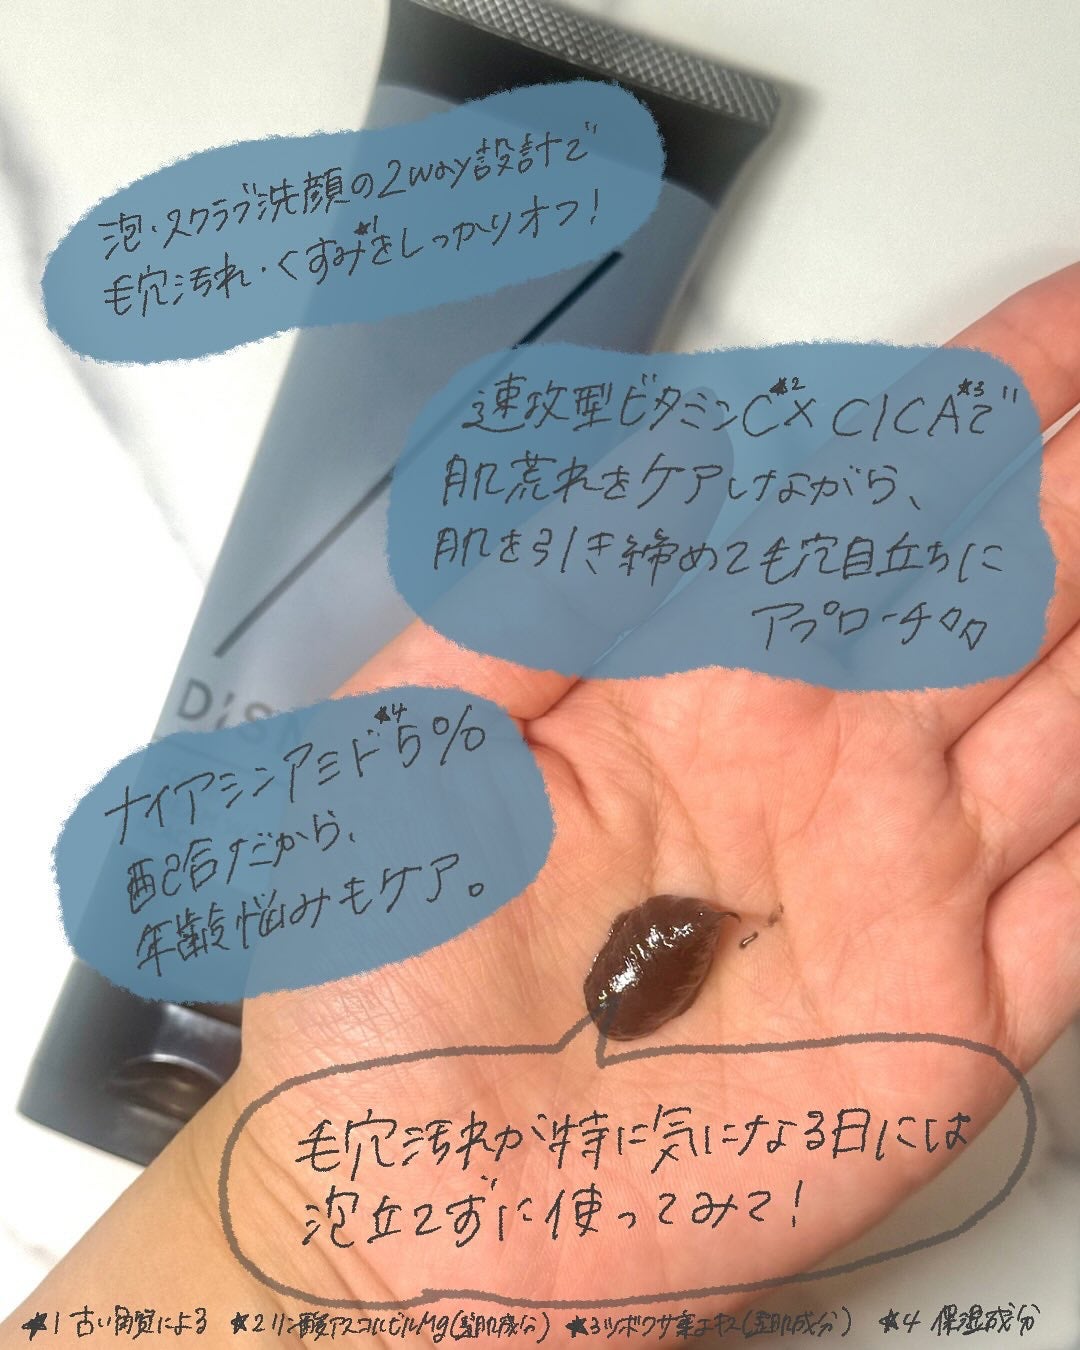 泡・スクラブ洗顔の2way設計で
毛穴汚れ・くすみ★1をしっかりオフ!
速攻型ビタミンC★2×CICA★3で
肌荒れをケアしながら、
肌を引き締めて毛穴目立ちに
アプローチ
ナイアシンアミド★45%
配合だから、
年齢悩みもケア。
毛穴汚れが特に気になる日には
泡立てずに使ってみて!
★1 古い角質による ★2リン酸アスコルビルMg(整肌成分) ★3ツボクサ葉エキス(整肌成分) ★4 保湿成分